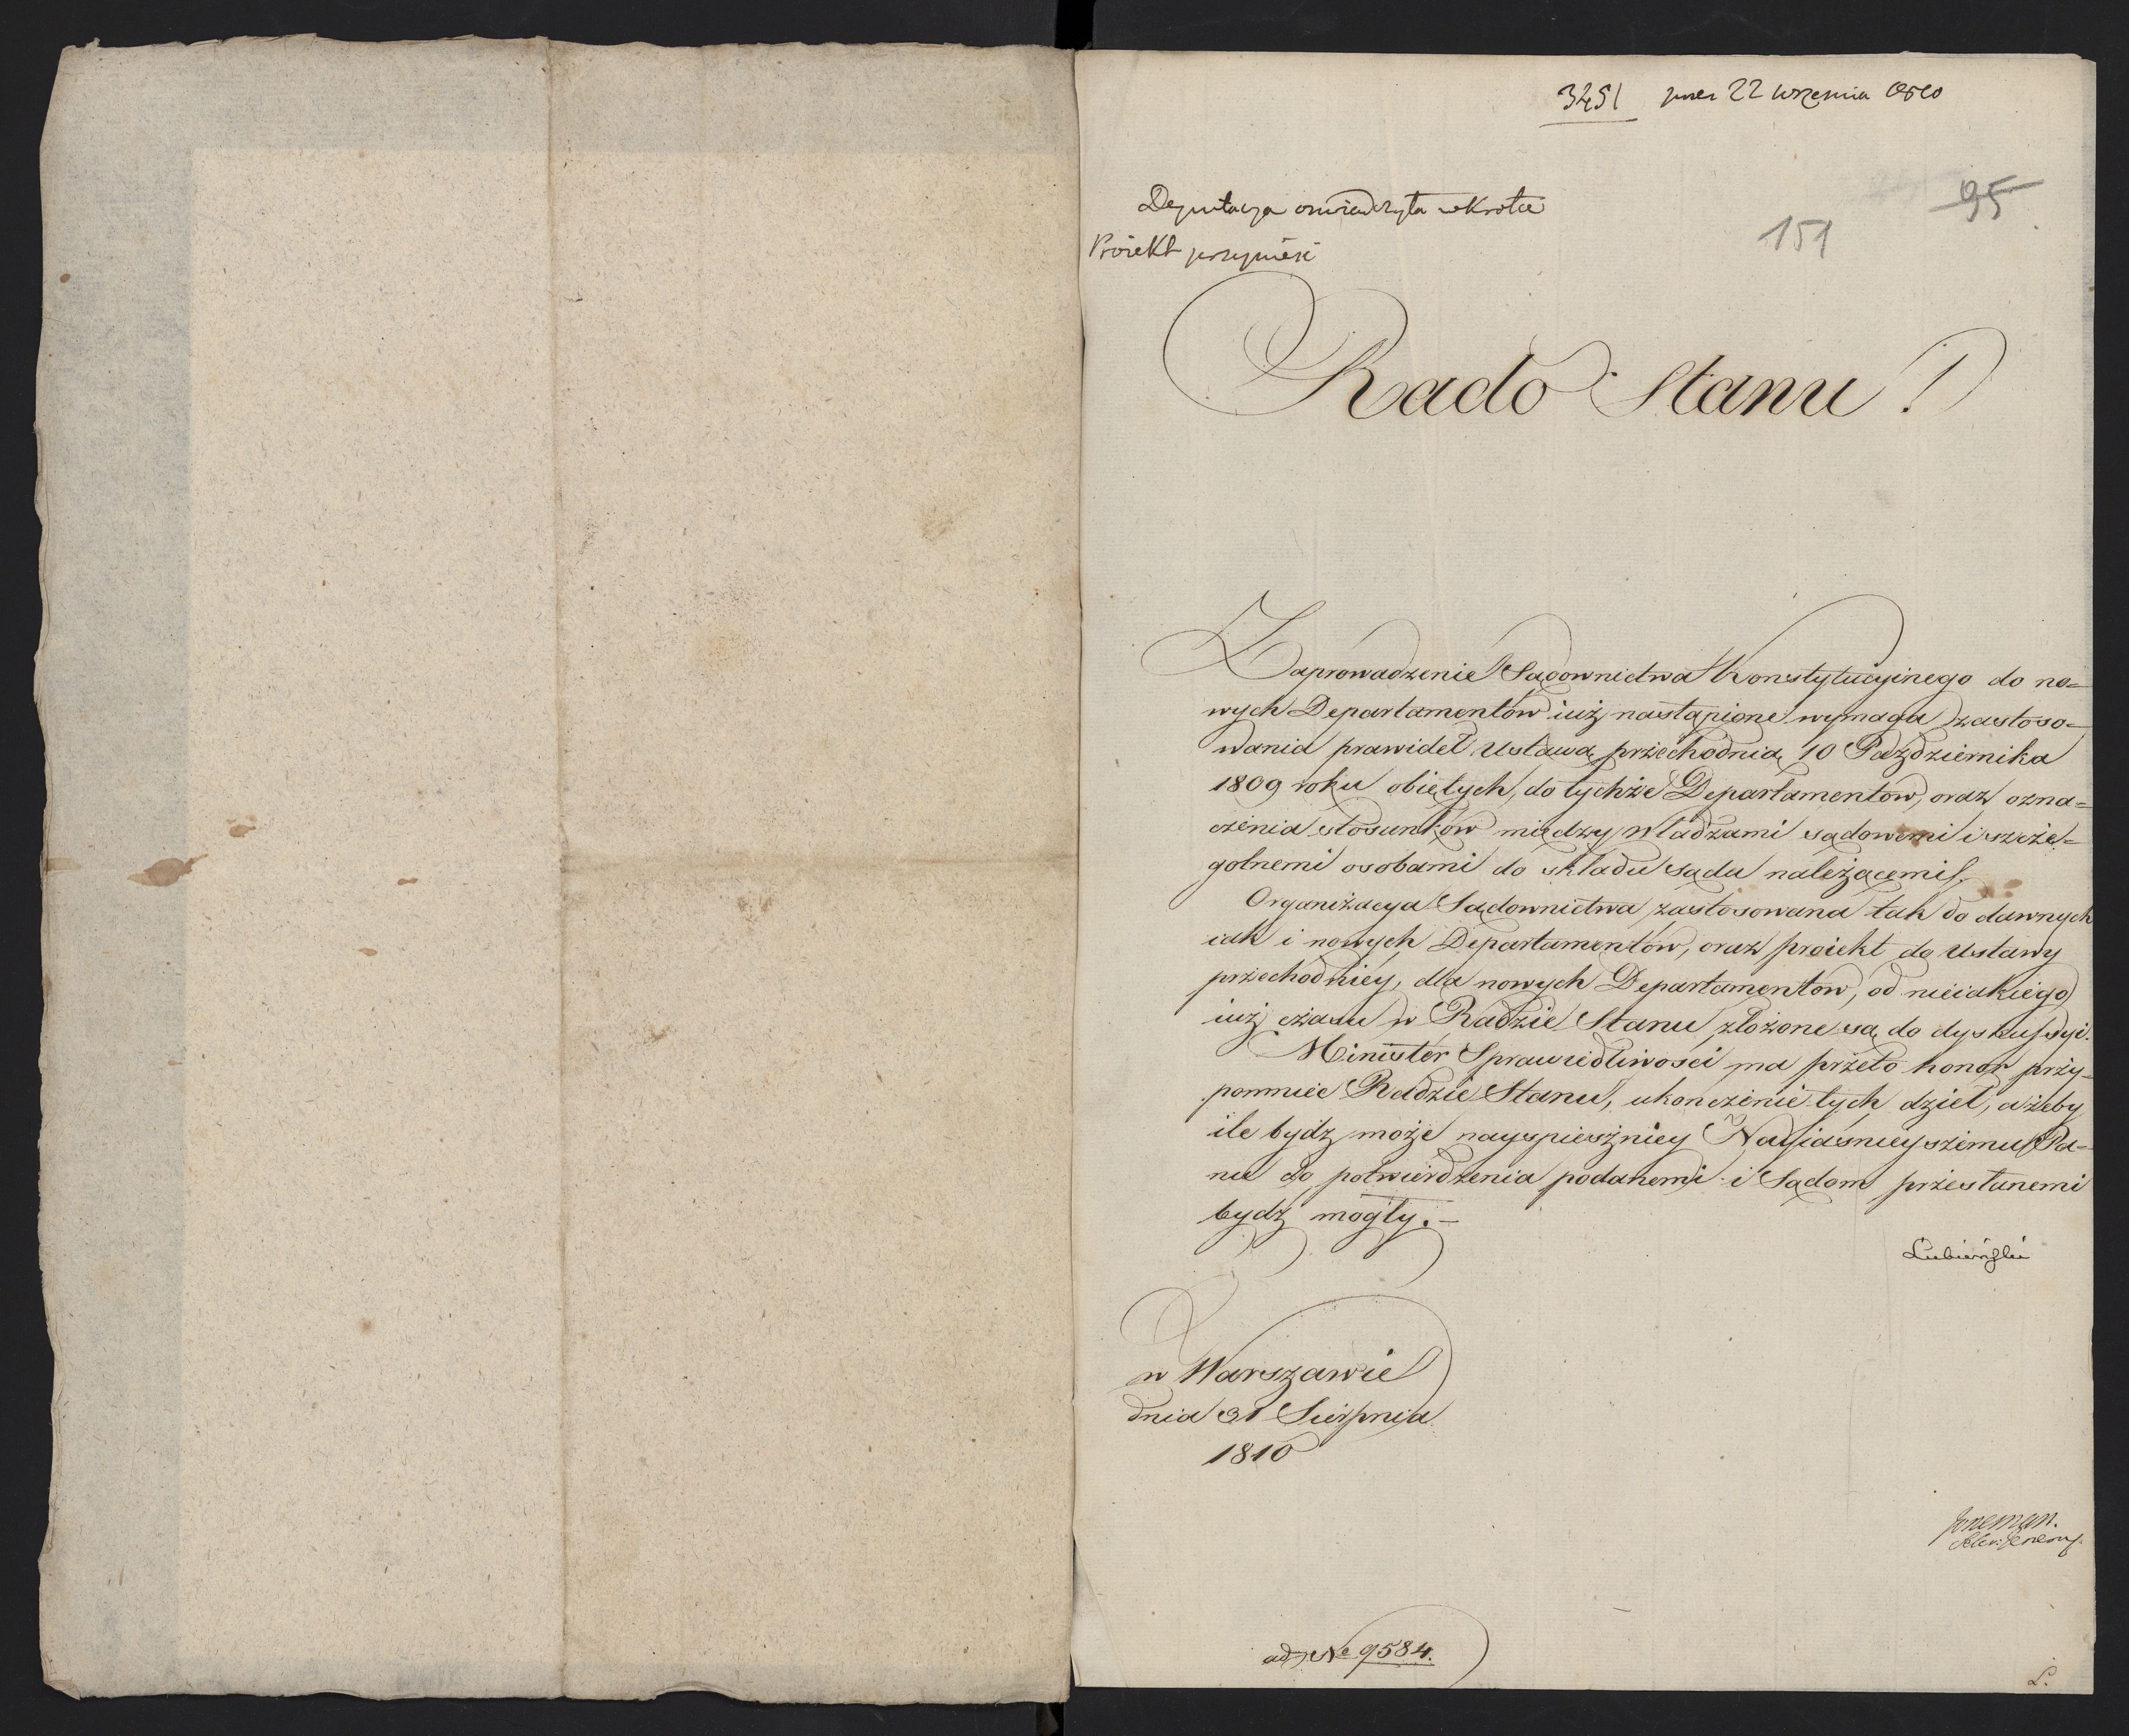 3451 prez 22 Września 1810
95
151
Deputacya oświadczyła wkrótce
Proiekt przynieść
Rado Stanu!
Zaprowadzenie Sądownictwa Konstytucyinego do no=
wych Departamentów iuż nastąpione wymaga zastoso=
wania prawideł Ustawą przechodnią 10 Października
1809 roku obiętych, do tychże Departamentów, oraz ozna=
czenia stosunków między Władzami sądowemi i szcze=
gólnemi osobami do składu sądu należącemi.
Organizacya Sądownictwa zastosowana tak do dawnych
iak i nowych Departamentów, oraz proiekt do Ustawy
przechodniey, dla nowych Departamentów, od nieiakiego
iuż czasu w Radzie Stanu złożone są do dyskussyi.
Minister Sprawiedliwości ma przeto honor przy=
pomnieć Radzie Stanu, ukończenie tych dzieł, ażeby
ile bydz może nayspieszniey Nayiaśnieyszemu Pa=
nu do potwierdzenia podanemi i Sądom przesłanemi
bydz mogły.—
Lubieński
w Warszawie
dnia 31 Sierpnia
1810
Sekr: Jeneralny
ad No 9584.
L.